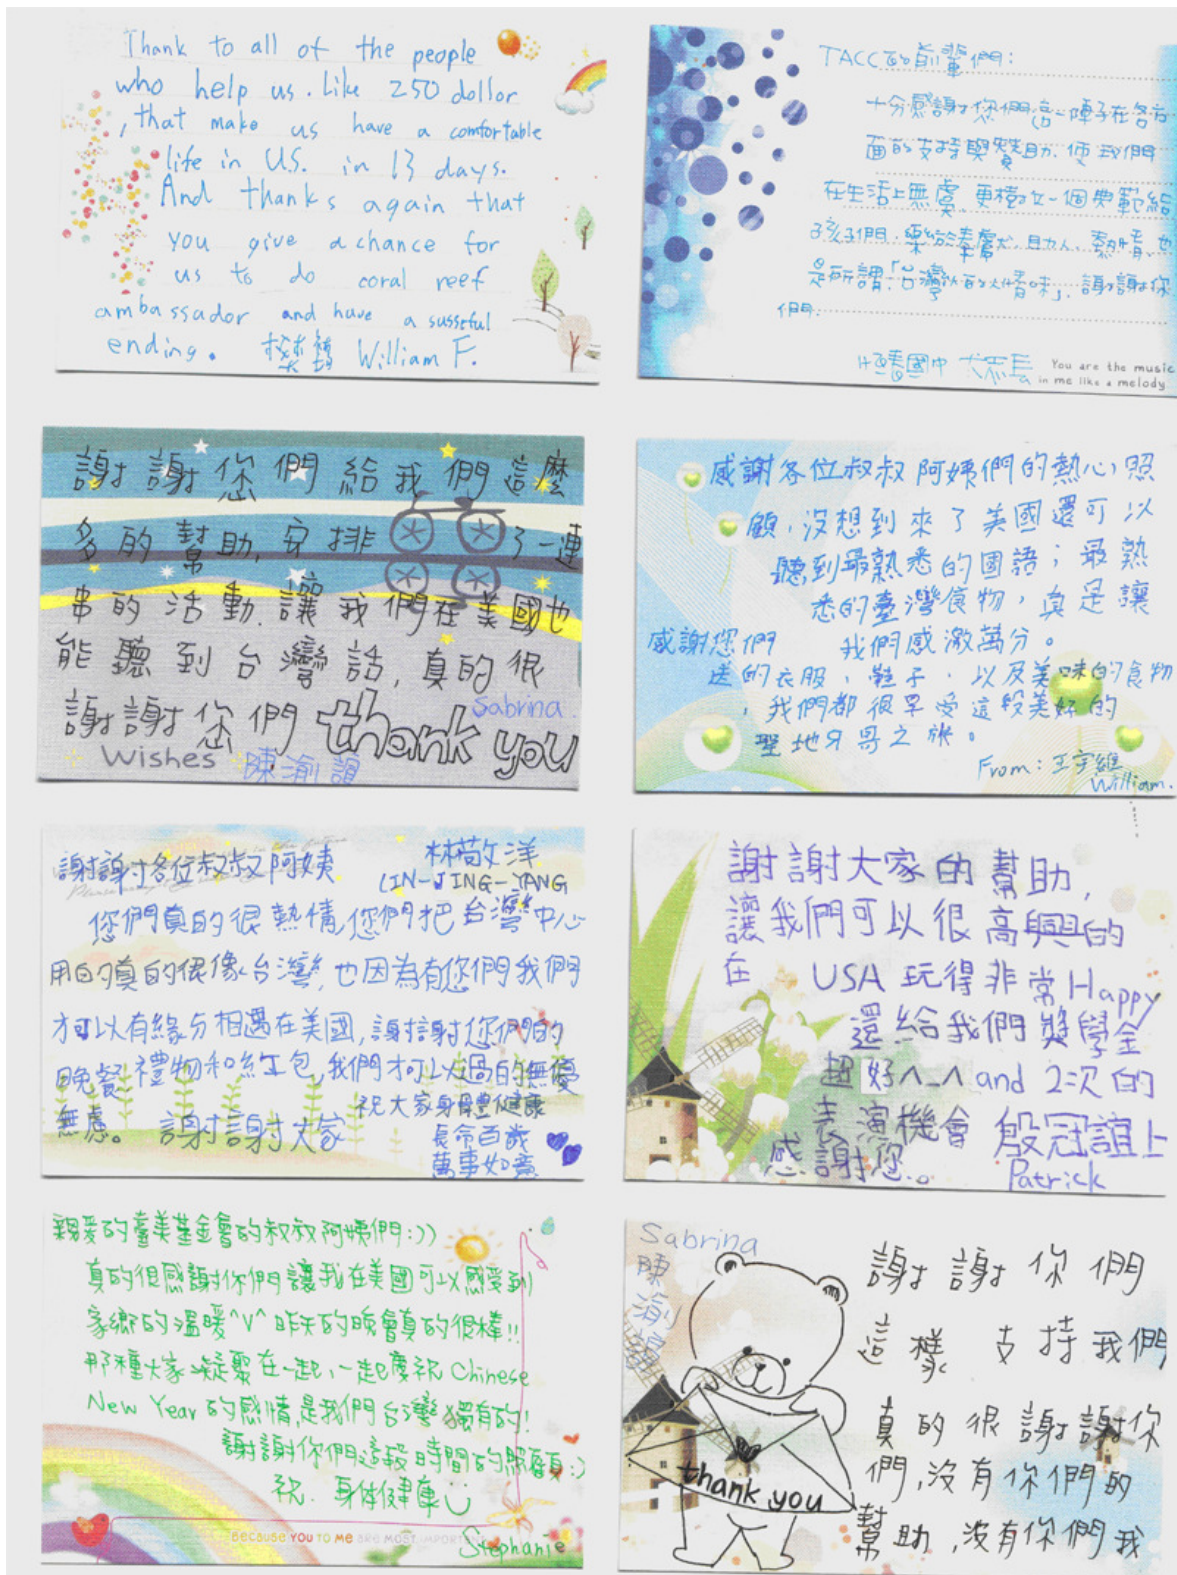 Thank to all of the people
who help us. Like 250 dollor
, that make us have a comfortable
life in U.S. in 13 days.
And thanks again that
you give a chance for
us to do coral reef
ambassador and have a susseful
ending. William F.
TACC的前輩們:
十分感謝你們這一陣子在各方
面的支持與贊助,使我們
在生活上無虞,更樹立一個典範給
孩子們,樂於奉獻、助人、熱情,也
是所謂「台灣的人情味」,謝謝你
們.
恆春國中
You are the music
in me like a melody
謝謝您們給我們這麼
多的幫助,安排了一連
串的活動,讓我們在美國也
能聽到台灣話,真的很
謝謝您們 thank you
Sabrina.
Wishes 陳渝誼
感謝各位叔叔阿姨們的熱心照
顧,沒想到來了美國還可以
聽到最熟悉的國語;最熟
悉的臺灣食物,真是讓
我們感激萬分。
感謝您們
送的衣服、鞋子、以及美味的食物
,我們都很享受這段美好的
聖地牙哥之旅。
From: 王宇維
William.
謝謝各位叔叔阿姨
林敬洋
LIN-JING-YANG
您們真的很熱情,您們把台灣中心
用的真的很像台灣,也因為有您們我們
才可以有緣分相遇在美國,謝謝您們的
晚餐禮物和紅包,我們才可以過的無憂
無慮。 謝謝大家
祝大家身體健康
長命百歲
萬事如意
謝謝大家的幫助,
讓我們可以很高興的
在 USA 玩得非常Happy
還給我們獎學金
超好^_^ and 2次的
表演機會
感謝您..。
殷冠誼上
Patrick
親愛的臺美基金會的叔叔阿姨們:))
真的很感謝你們讓我在美國可以感受到
家鄉的溫暖^V^昨天的晚會真的很棒!!
那種大家凝聚在一起,一起慶祝 Chinese
New Year 的感情,是我們台灣獨有的!
謝謝你們這段時間的照顧:)
祝. 身体健康
BECAUSE YOU TO ME ARE MOST IMPORTANT
Stephanie
Sabrina
陳渝誼
thank you
謝謝你們
這樣 支持我們
真的很謝謝你
們,沒有你們的
幫助,沒有你們我